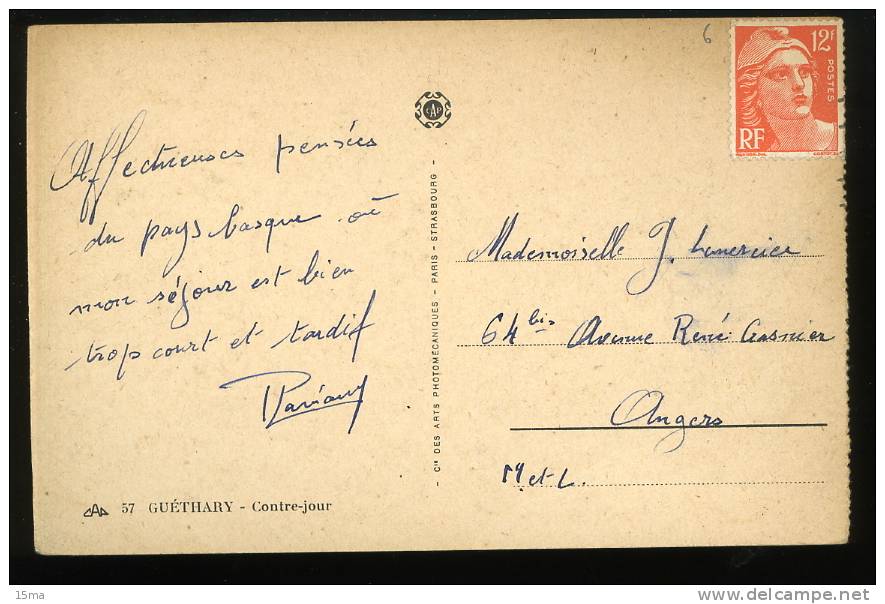 6
12F
POSTES
RF
CAP
Affectueuses pensées
du pays basque où
mon séjour est bien
trop court et tardif
- Cie DES ARTS PHOTOMÉCANIQUES - PARIS - STRASBOURG -
Mademoiselle J. Lemercier
64 bis Avenue René Gasnier
Angers
M et L.
CAP 57 GUÉTHARY - Contre-jour
15ma
www.delcampe.net